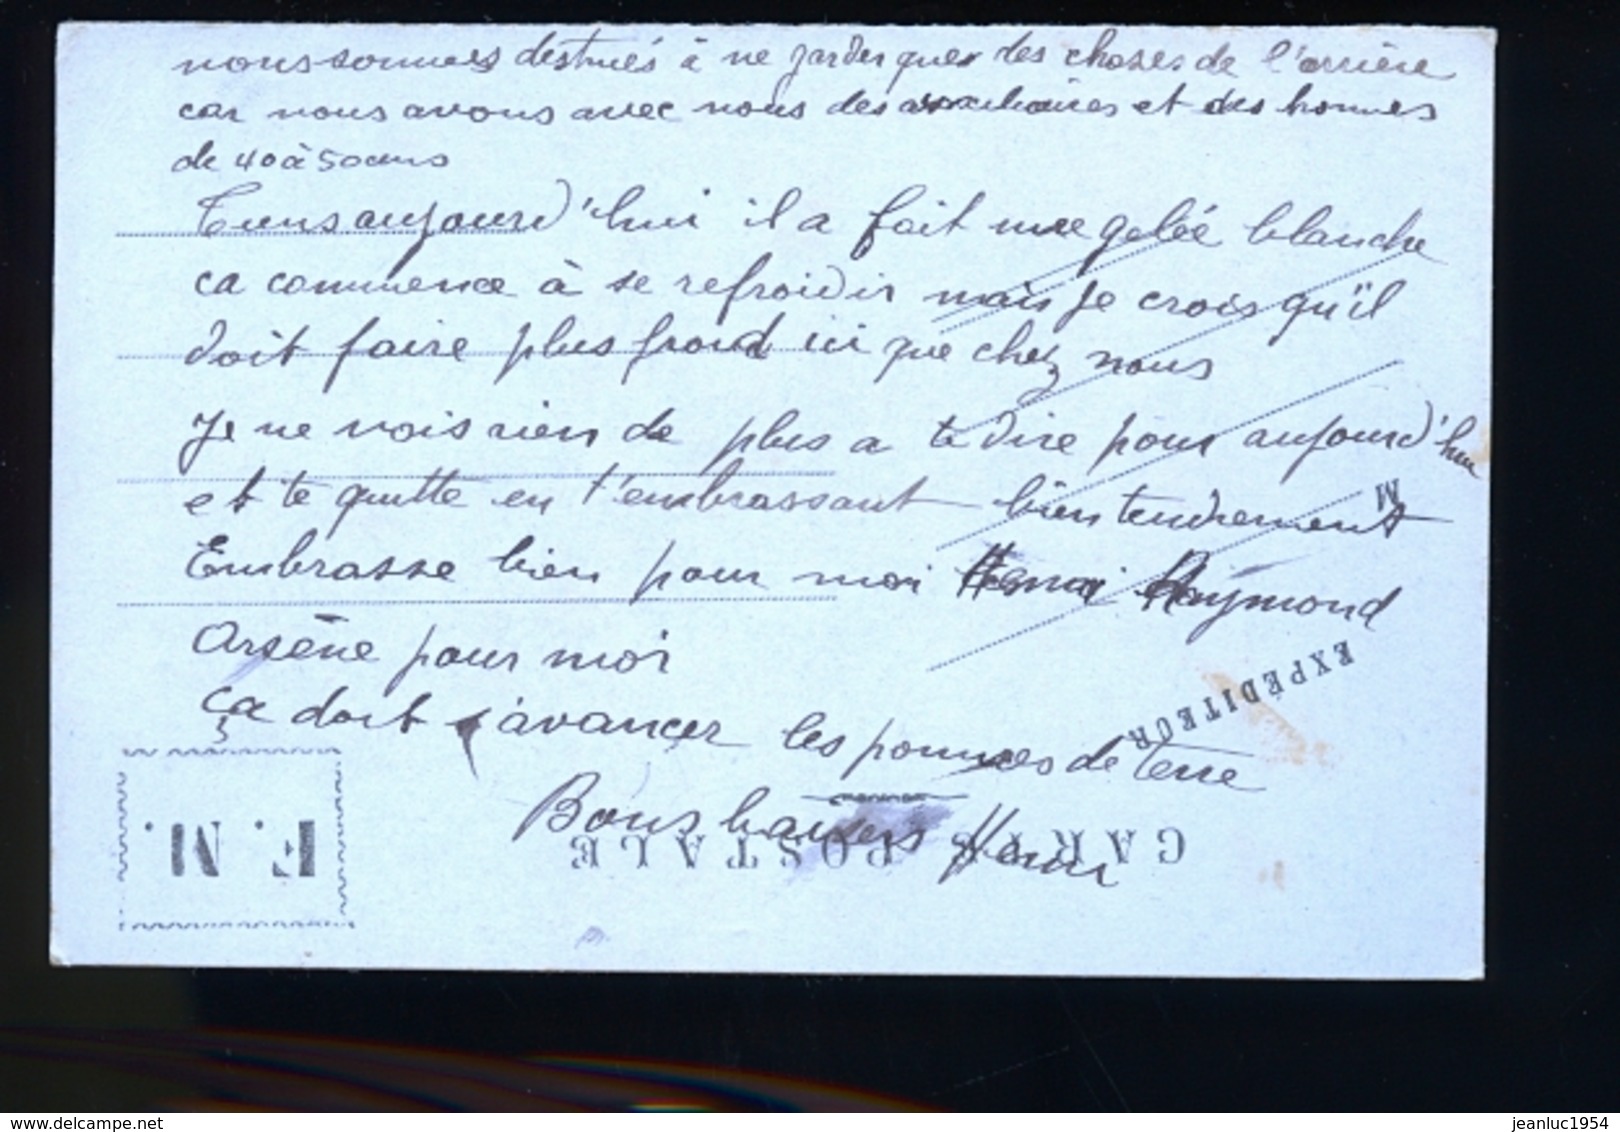 nous sommes destinés à ne garder que des choses de l'arrière
car nous avons avec nous des auxiliaires et des hommes
de 40 à 50 ans
Tiens aujourd'hui il a fait une gelée blanche
ca commence à se refroidir mais je crois qu'il
doit faire plus froid ici que chez nous
Je ne vois rien de plus a te dire pour aujourd'hui
et te quitte en t'embrassant bien tendrement
Embrasse bien pour moi Henri Raymond
Arsène pour moi
ça doit s'avancer les pommes de terre
Bons baisers Henri
M
EXPÉDITEUR
CARTE POSTALE
F. M.
jeanluc1954